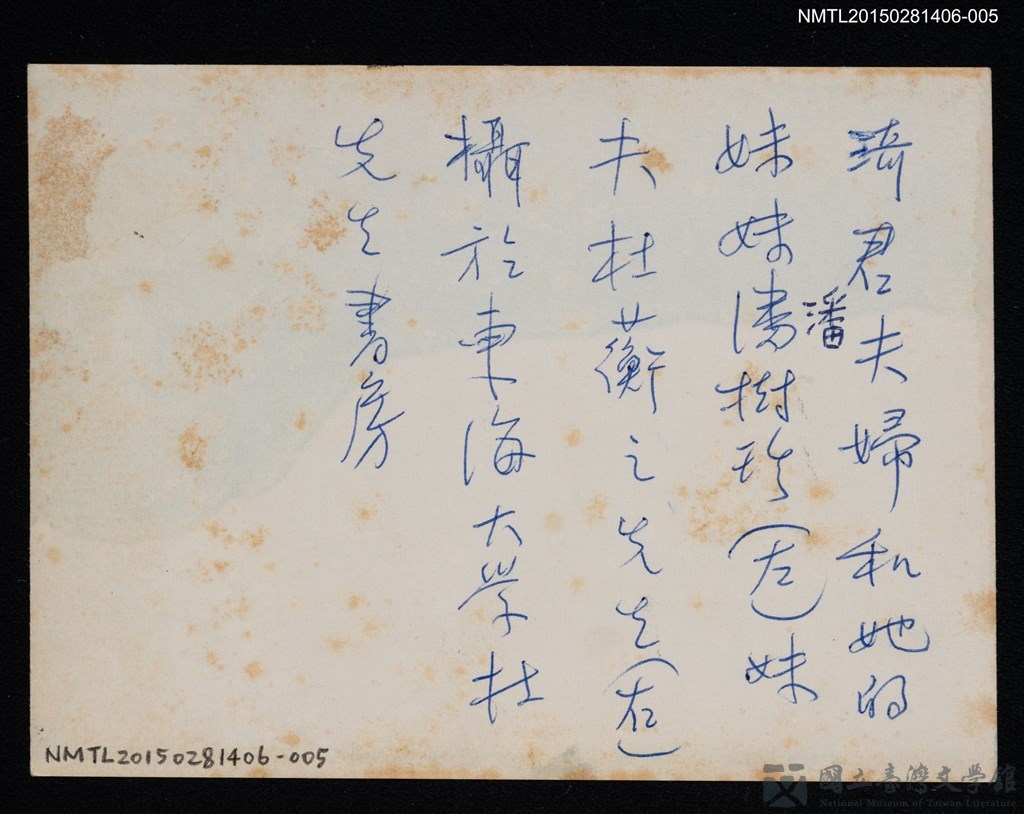 NMTL20150281406-005
琦君夫婦和她的
妹妹潘樹珍(左)妹
潘
夫杜蘅之先生(右)
攝於東海大學杜
先生書房
NMTL20150281406-005
國立臺灣文學館
National Museum of Taiwan Literature